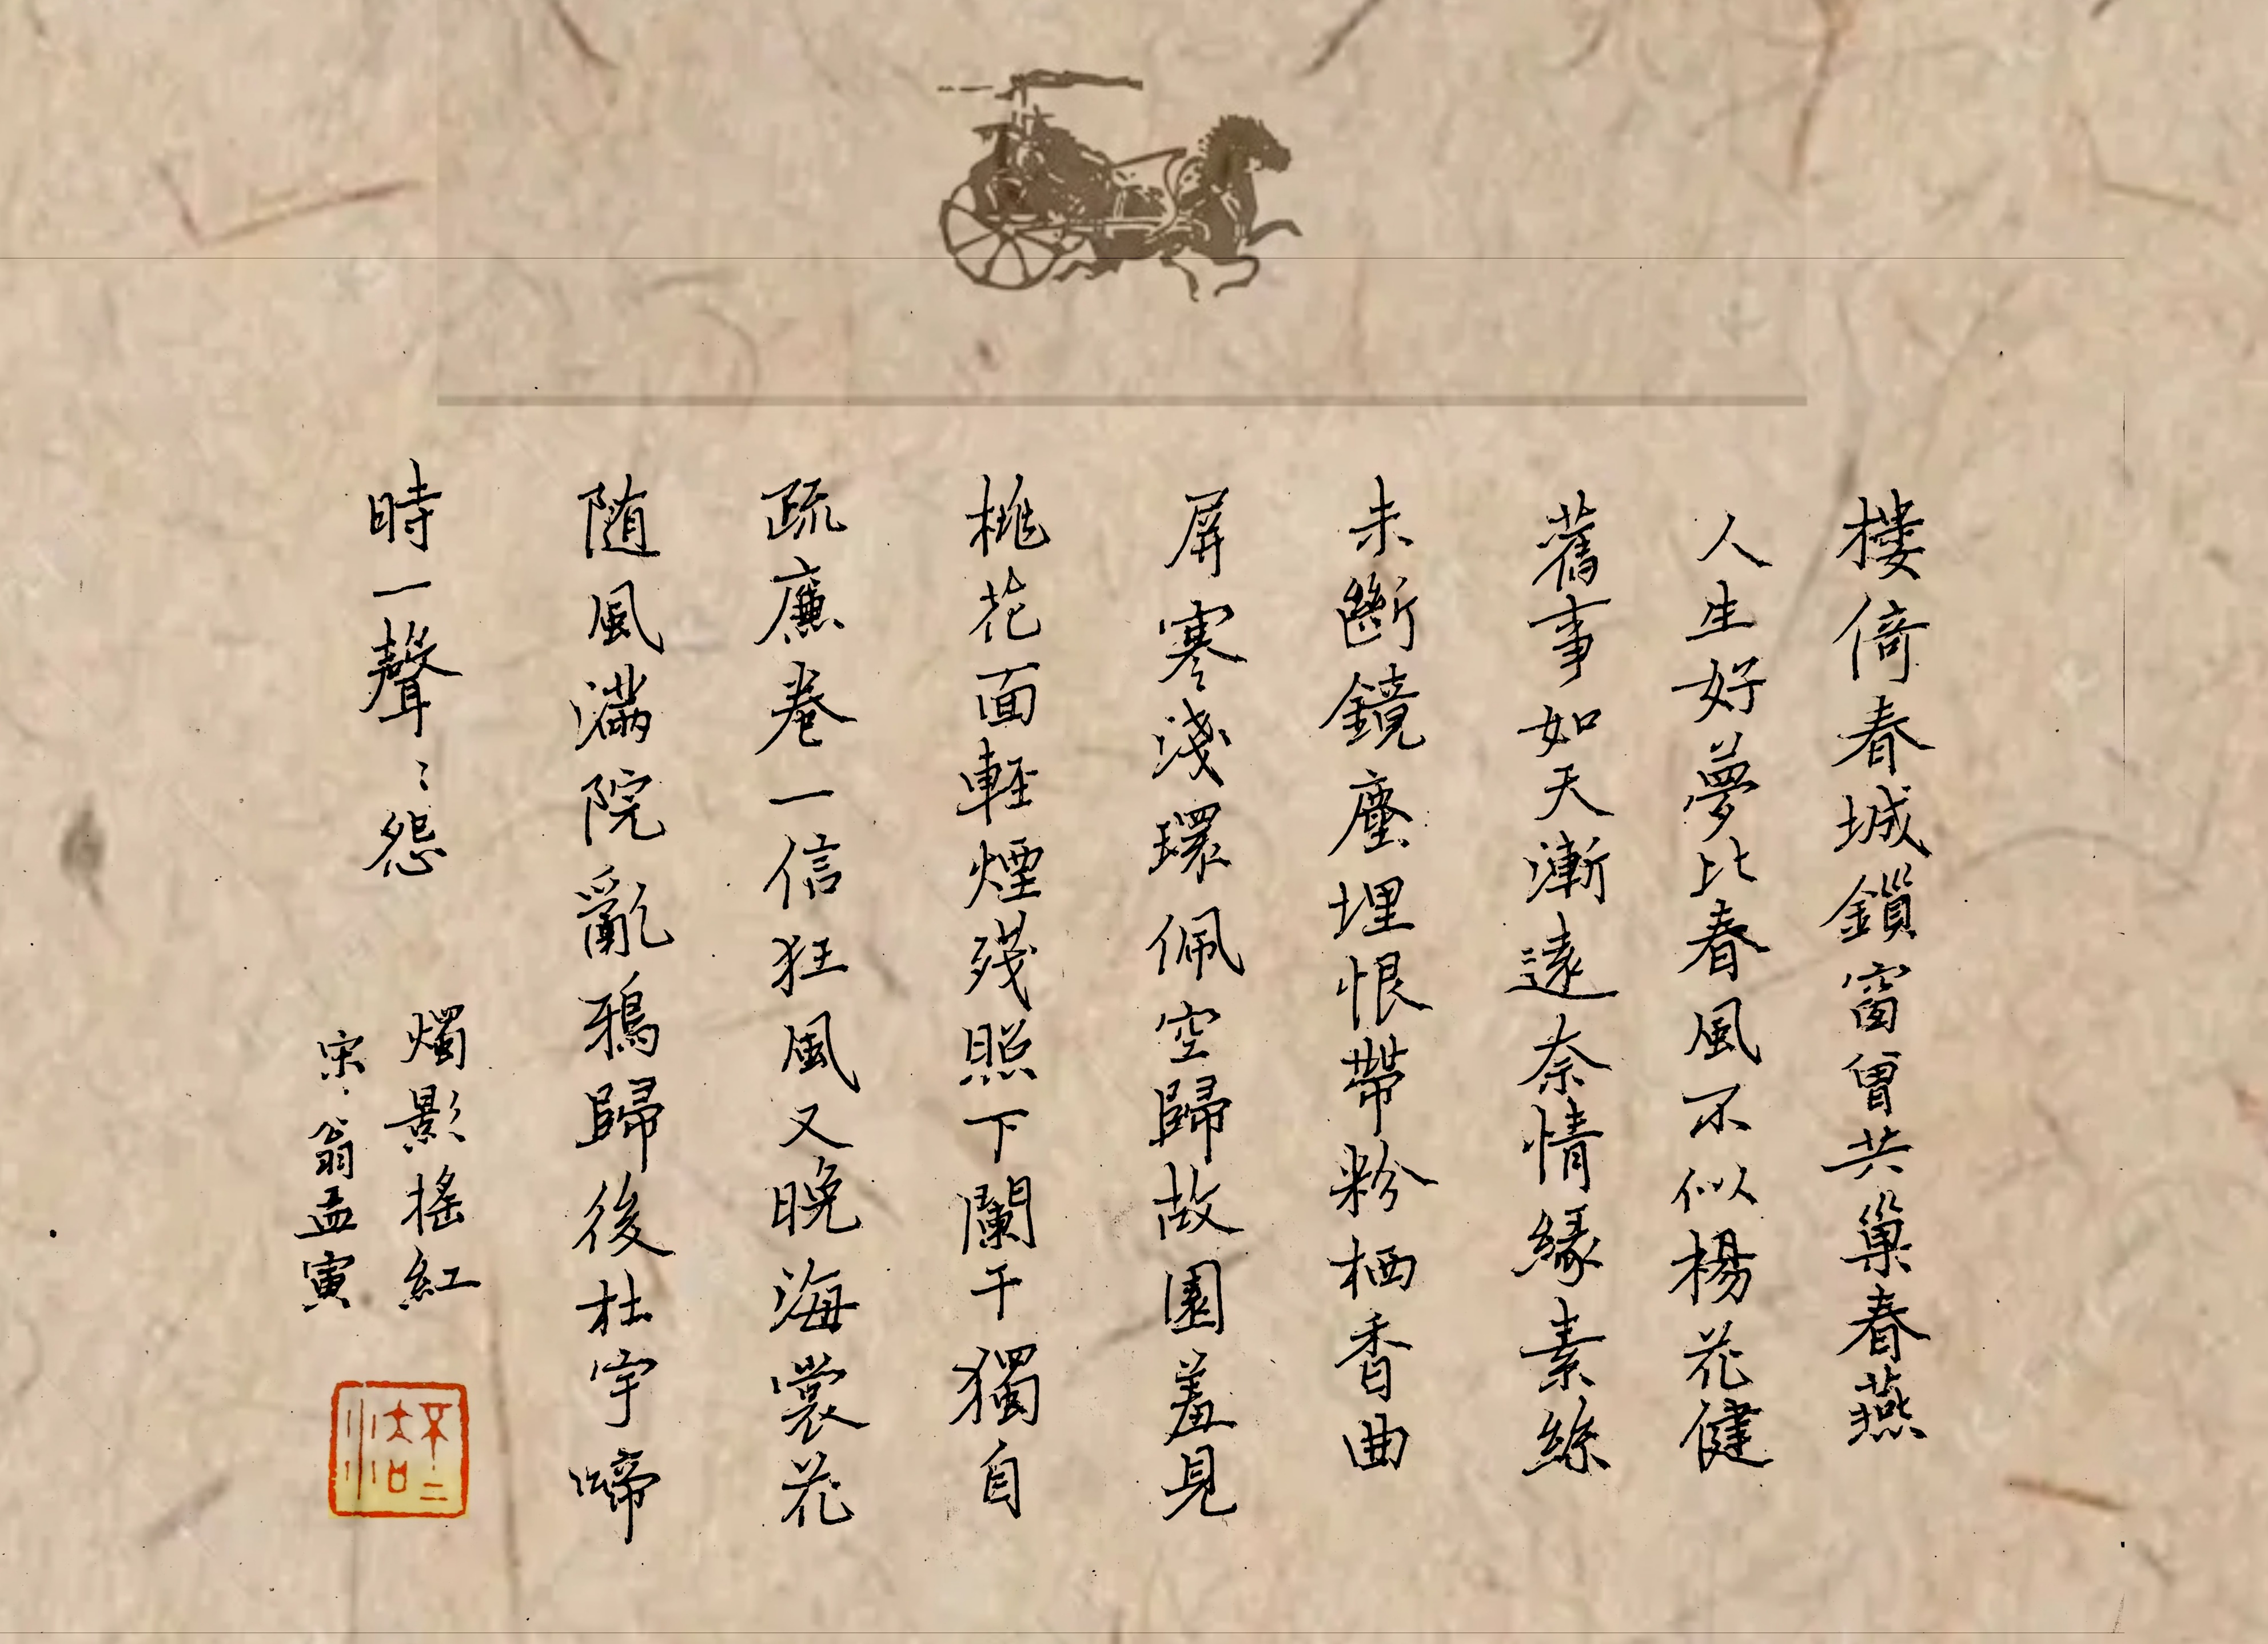 樓倚春城鎖窗曾共巢春燕
人生好夢比春風不似楊花健
舊事如天漸遠奈情緣素絲
未斷鏡塵埋恨帶粉栖香曲
屏寒淺環佩空歸故園羞見
桃花面輕煙殘照下闌干獨自
疏廉卷一信狂風又晚海裳花
随風滿院亂鴉歸後杜宇啼
時一聲〻怨
燭影搖紅
宋·翁孟寅